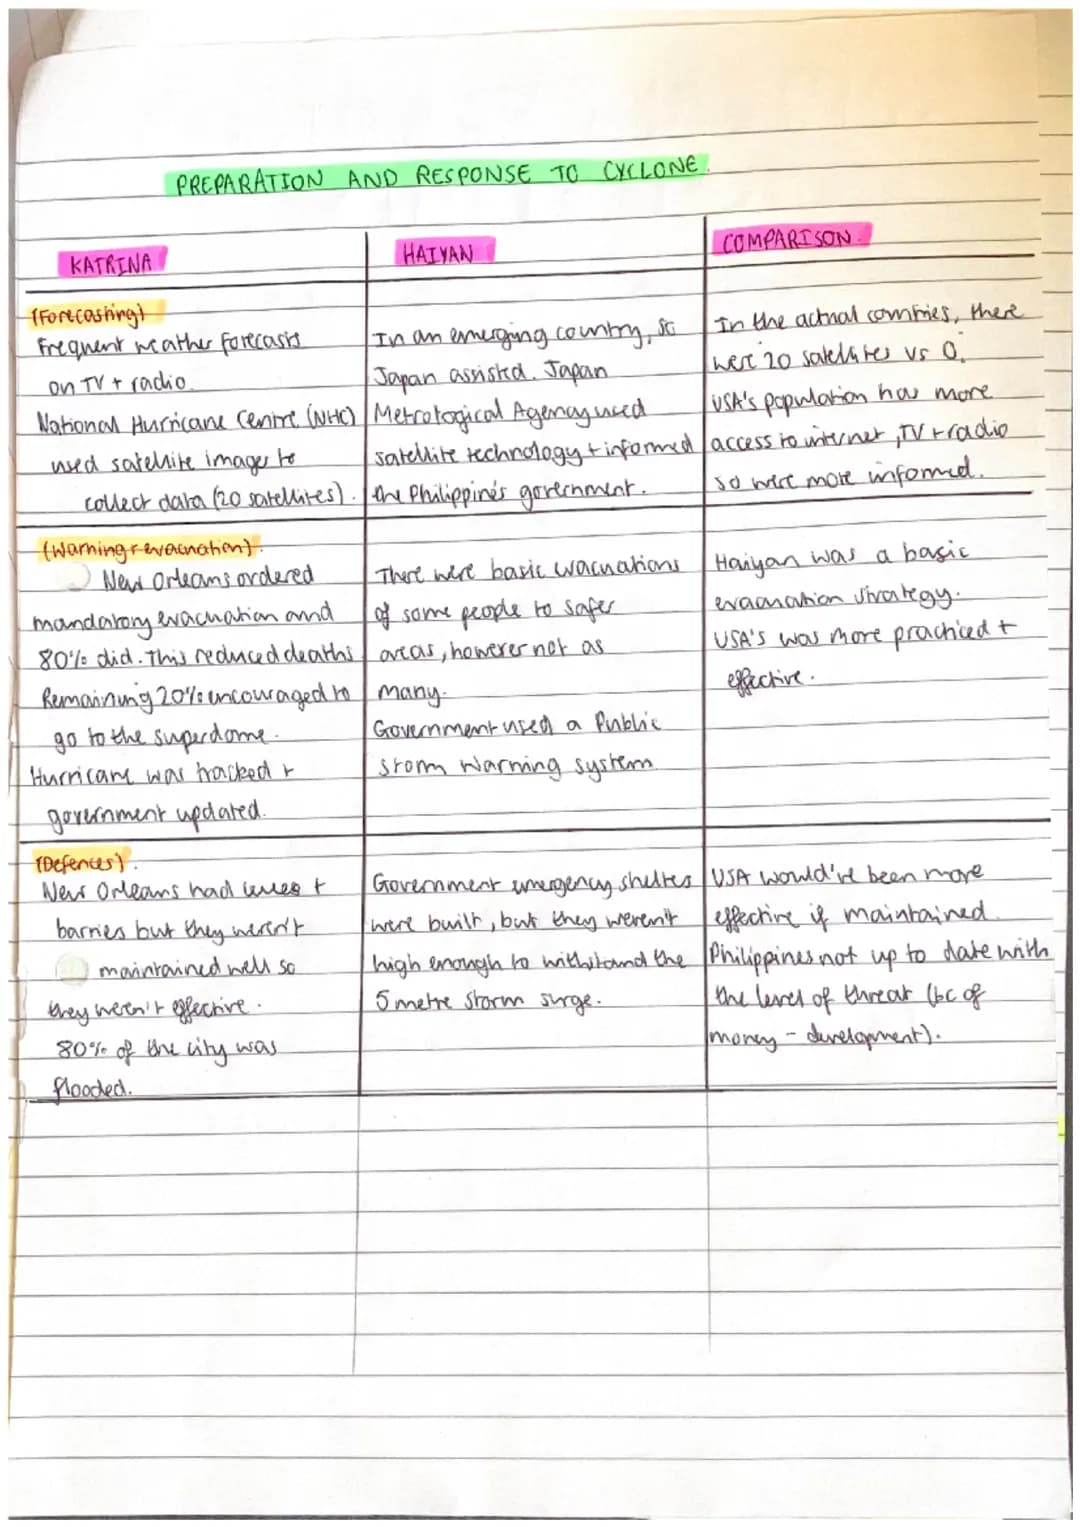 PREPARATION AND RESPONSE TO CYCLONE.
KATRINA
HAIYAN
COMPARISON.
(Forecasting)
Frequent weather forecasts
on TV + radio.
National Hurricane Centre (NHC)
used satellite images to
collect data (20 satellites).
In an emerging country, so
Japan assisted. Japan
Metrological Agency used
satellite technology + informed
the Philippines government.
In the actual countries, there
were 20 satellites vs 0.
USA's population has more
access to internet, TV + radio
so were more informed.
(Warning + evacuation).
New Orleans ordered
mandatory evacuation and
80% did. This reduced deaths
Remaining 20% encouraged to
go to the superdome.
Hurricane was tracked +
government updated.
There were basic evacuations
of some people to safer
areas, however not as
many.
Government used a Public
storm warning system.
Haiyan was a basic
evacuation strategy.
USA's was more practiced +
effective.
(Defences).
New Orleans had levees +
barries but they weren't
maintained well so
they weren't effective.
80% of the city was
flooded.
Government emergency shelters
were built, but they weren't
high enough to withstand the
5 metre storm surge.
USA would've been more
effective if maintained.
Philippines not up to date with
the level of threat (bc of
money - development).